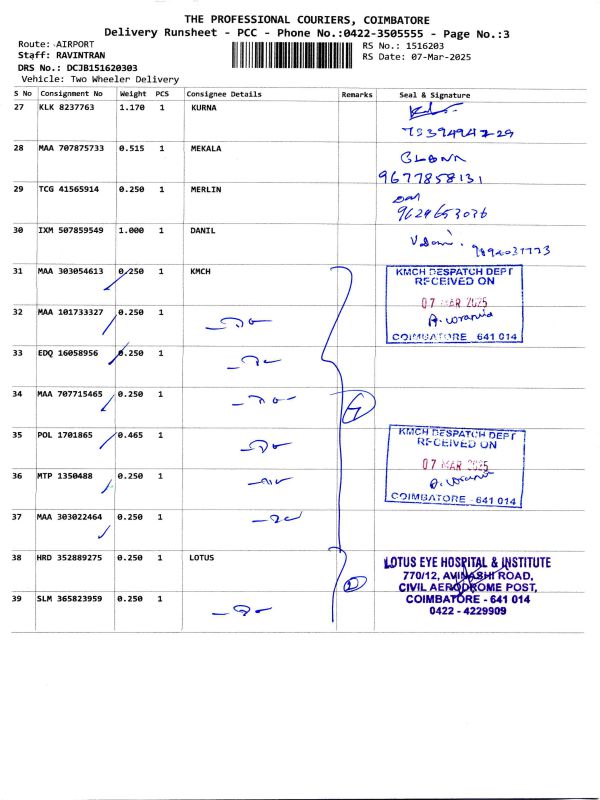 THE PROFESSIONAL COURIERS, COIMBATORE
Delivery Runsheet - PCC - Phone No.:0422-3505555 - Page No.:3
Route: AIRPORT RS No.: 1516203
Staff: RAVINTRAN RS Date: 07-Mar-2025
DRS No.: DCJB151620303
Vehicle: Two Wheeler Delivery
S No Consignment No Weight PCS Consignee Details Remarks Seal & Signature
27 KLK 8237763 1.170 1 KURNA
28 MAA 707875733 0.515 1 MEKALA
9677858131
29 TCG 41565914 0.250 1 MERLIN
9629653076
30 IXM 507859549 1.000 1 DANIL
31 MAA 303054613 0.250 1 KMCH
KMCH DESPATCH DEPT
RECEIVED ON
07 MAR 2025
COIMBATORE - 641 014
32 MAA 101733327 0.250 1 -do-
33 EDQ 16058956 0.250 1 -do-
34 MAA 707715465 0.250 1 -do- 7
35 POL 1701865 0.465 1 -do-
KMCH DESPATCH DEPT
RECEIVED ON
07 MAR 2025
COIMBATORE - 641 014
36 MTP 1350488 0.250 1 -do-
37 MAA 303022464 0.250 1 -do-
38 HRD 352889275 0.250 1 LOTUS 2
LOTUS EYE HOSPITAL & INSTITUTE
770/12, AVINASHI ROAD,
CIVIL AERODROME POST,
COIMBATORE - 641 014
0422 - 4229909
39 SLM 365823959 0.250 1 -do-